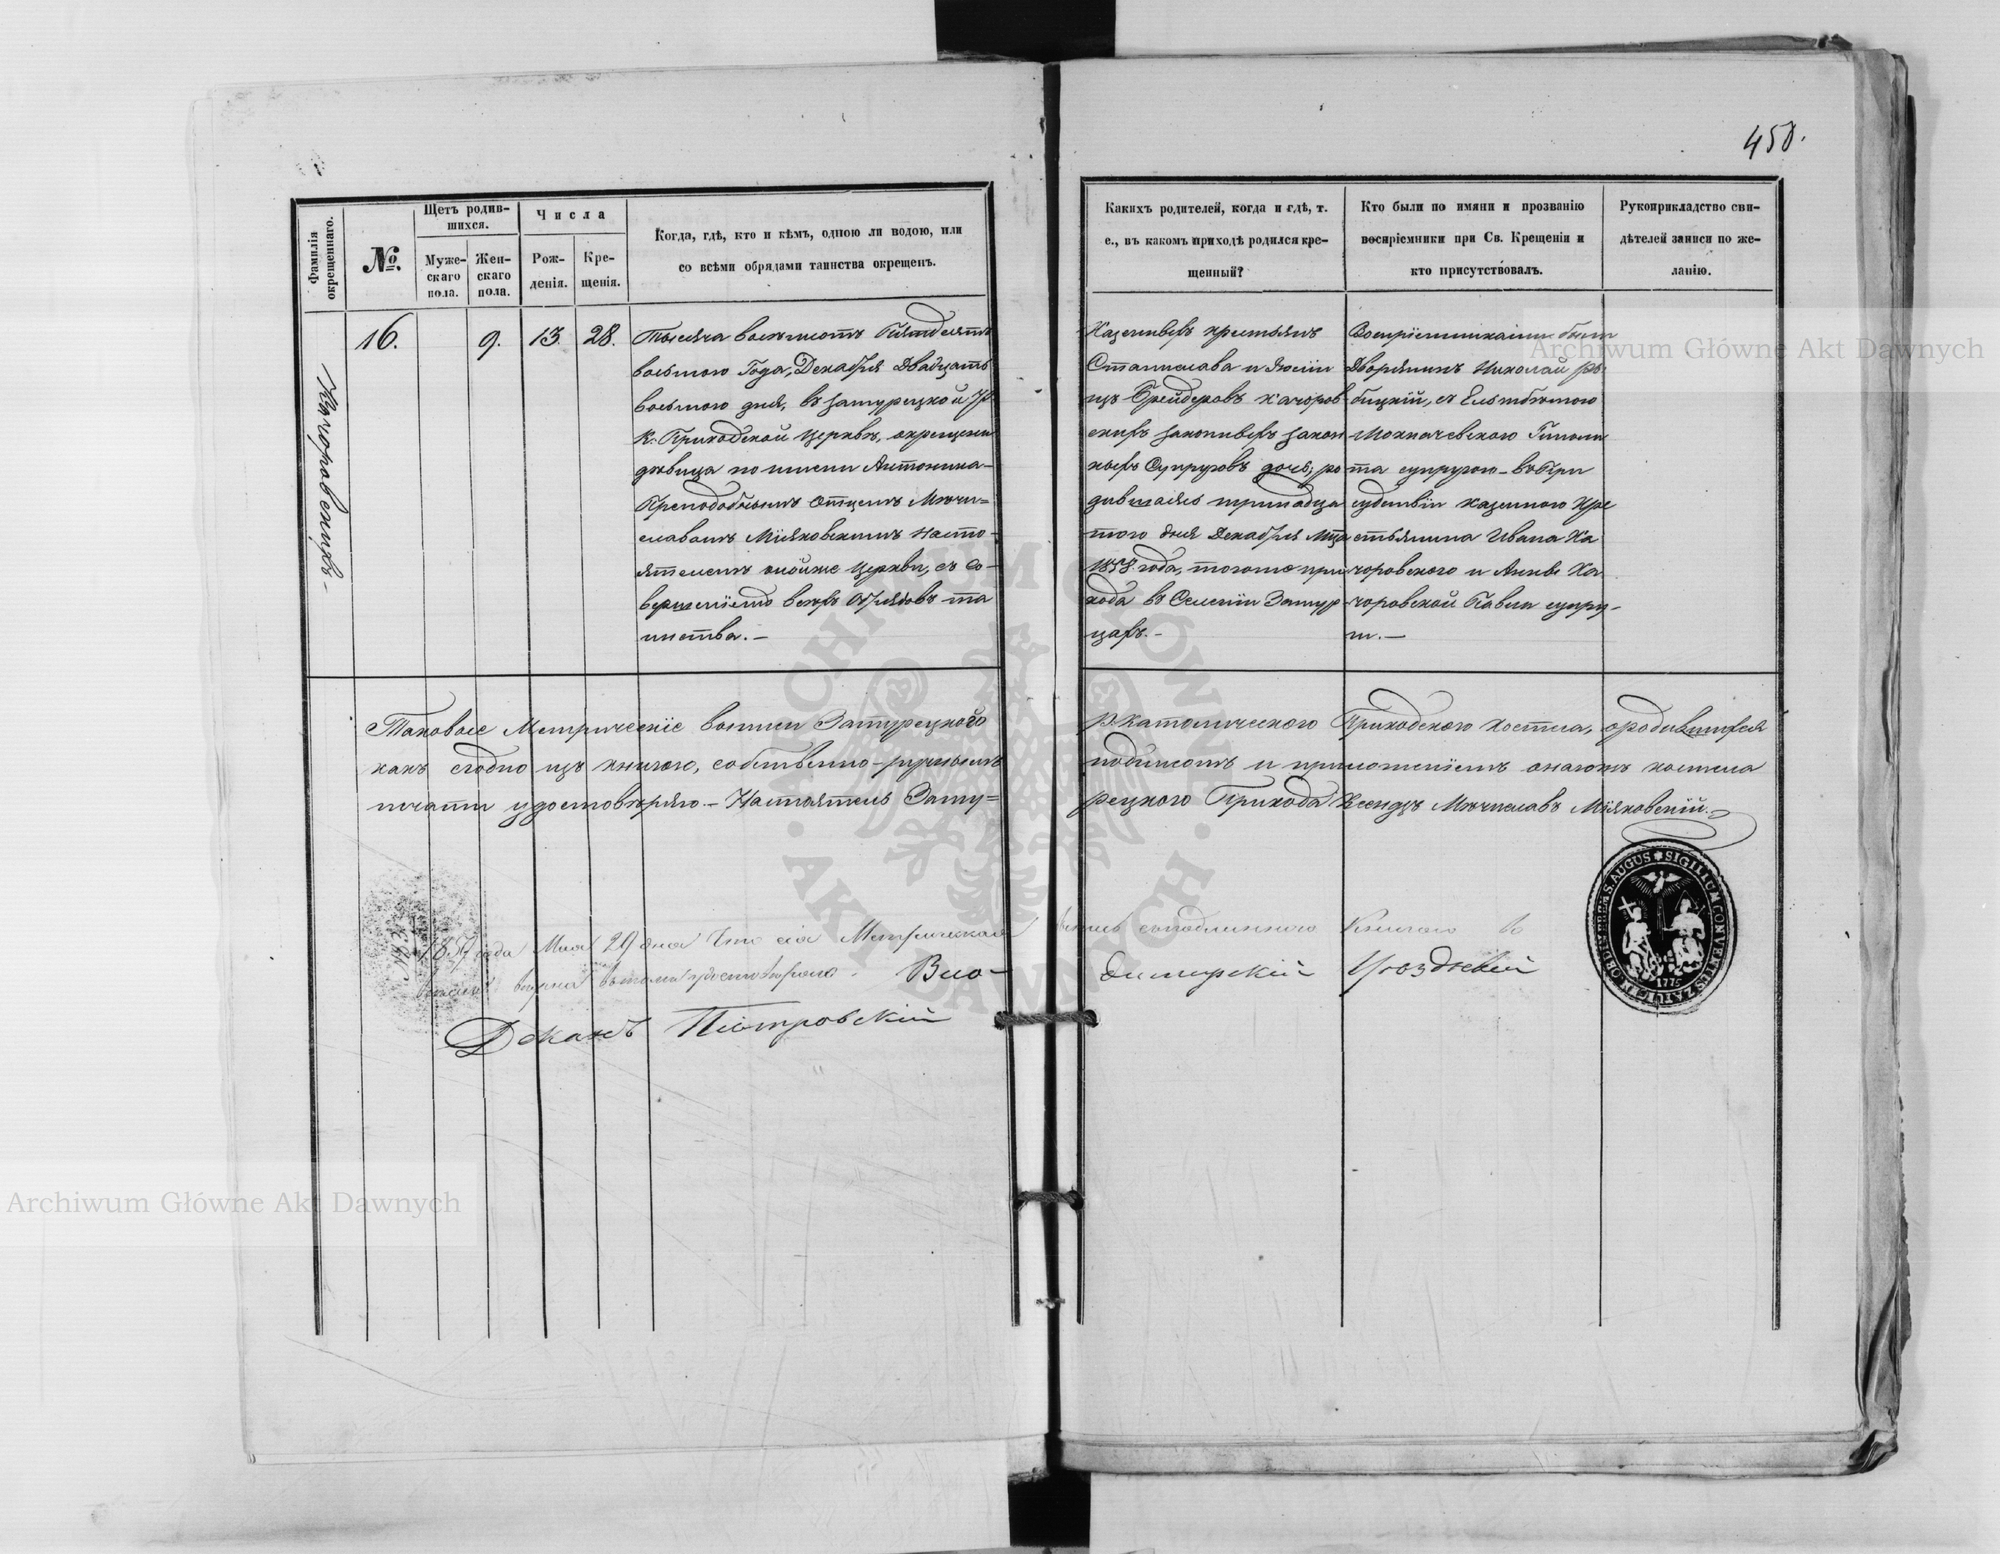 458.
Фамилія окрещеннаго.
№.
Щетъ родив-
шихся.
Муже-
скаго
пола.
Жен-
скаго
пола.
Числа
Рож-
денія.
Кре-
щенія.
Когда, гдѣ, кто и кѣмъ, одною ли водою, или
со всѣми обрядами таинства окрещенъ.
Какихъ родителей, когда и гдѣ, т.
е., въ какомъ приходѣ родился кре-
щенный?
Кто были по имяни и прозванію
воспріемники при Св. Крещеніи и
кто присутствовалъ.
Рукоприкладство сви-
дѣтелей записи по же-
ланію.
16.
9.
13.
28.
Тысяча восемьсотъ Пятдесятъ
восьмого Года, Декабря Двадцать
восьмого дня, въ Затурецкой Р.
К. Приходской Церквѣ, окрещена
дѣвица по имени Антонина
Преподобнымъ Отцемъ Мѣчи=
славомъ Міяковскимъ Насто-
ятелемъ онойже Церкви, съ со-
вершеніемъ всѣхъ Обрядовъ та
инства.—
Казенныхъ крестьянъ
Станислава и
изъ Качоров
скихъ законныхъ
ныхъ Супруговъ дочь, ро
дившаяся тринадца
того дня Декабря Мца
1858 года, тогоже при
хода въ Селеніи Затур
цахъ.—
Воспріемниками были
Дворянинъ Николай Ры
бицкій, съ
супругою—въ при
судствіи казенного Кре
стьянина Ивана Ка
чоровского и Анны Ка
чоровской Павла супру-
ги.—
Таковые Метрическіе выписи Затурецкого Р. католического Приходского костела, о родившихся
какъ сгодно изъ книгою, собственно-ручнымъ подписомъ и приложеніемъ онагожъ костела
печати удостовѣряю.— Настоятель Зату= рецкого Прихода Ксендзъ Мѣчиславъ Міяковскій.
года Мая 29 дня Что сія Метрическая выпись съ подлинного Книгою
вѣрна въ томъ удостовѣряю. Вло- димирскій Уѣздный
Деканъ Піотровскій
SIGILLUM CONVENTUS ZATURCEN ORD. EREM. S. AUGUS
Archiwum Główne Akt Dawnych
Archiwum Główne Akt Dawnych
ARCHIWUM GŁÓWNE AKT DAWNYCH